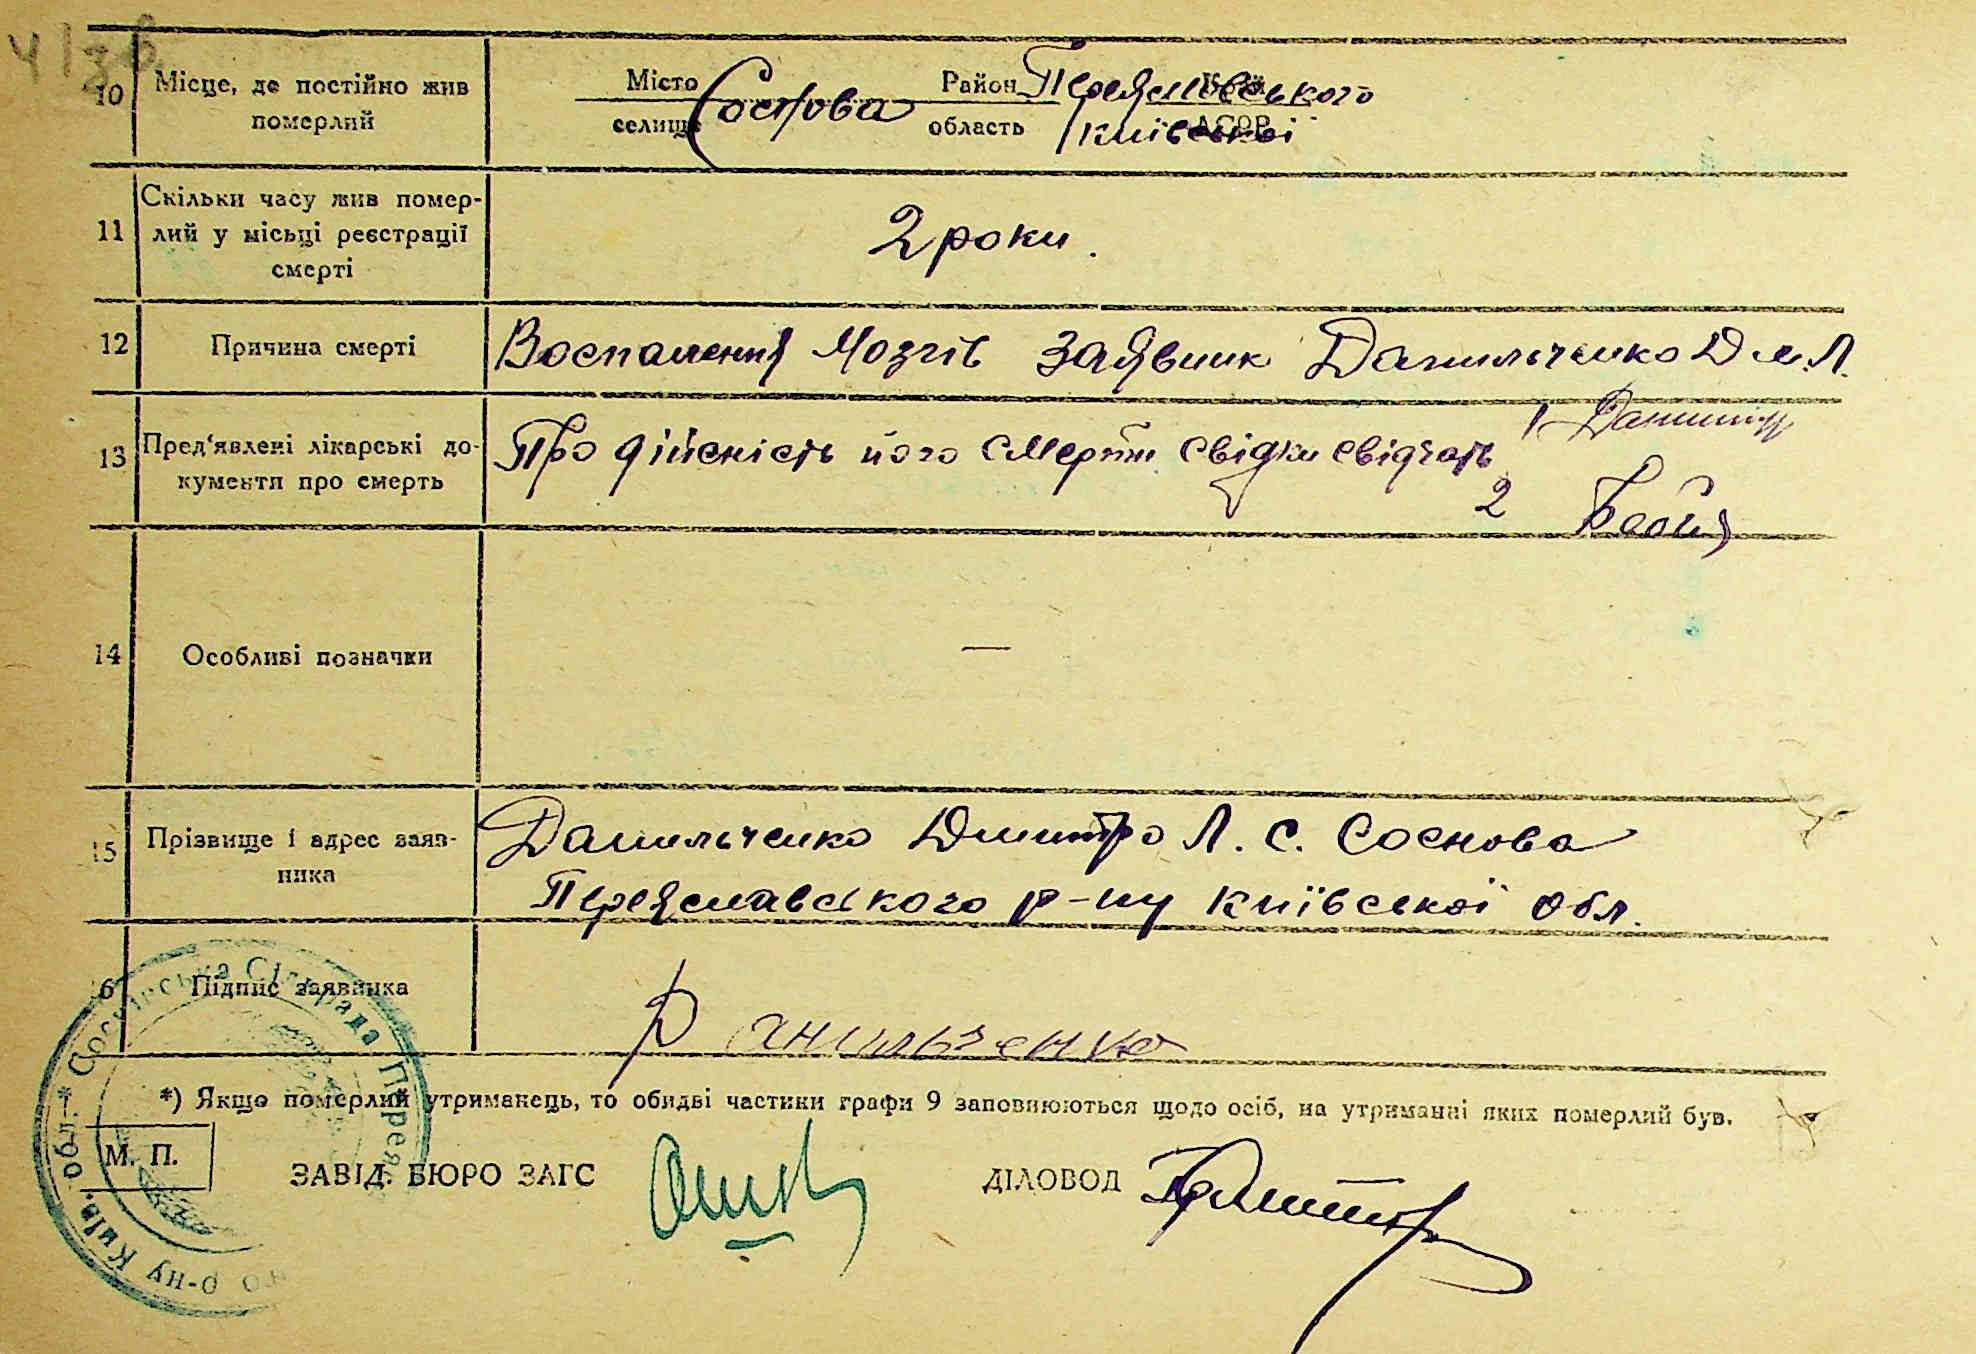 41зв.
10 Місце, де постійно жив померлий
Місто Соснова Район Переяславського
селище область Київської АСРР
11 Скільки часу жив помер-
лий у місьці реєстрації
смерті
2 роки.
12 Причина смерті
Воспаления Мозгів заявник Данильченко Дм. Л.
13 Пред'явлені лікарські до-
кументи про смерть
Про дійсність його смерти свідки свідчать 1
2
14 Особливі позначки
—
15 Прізвище і адрес заяв-
ника
Данильченко Дмитро Л. с. Соснова
Переяславського р-ну Київської обл.
16 Підпис заявника
Данильченко
*) Якщо померлий утриманець, то обидві частини графи 9 заповнюються щодо осіб, на утриманні яких померлий був.
М. П.
ЗАВІД. БЮРО ЗАГС
ДІЛОВОД
* Соснівська Сільрада Перея
го р-ну Київ. обл.